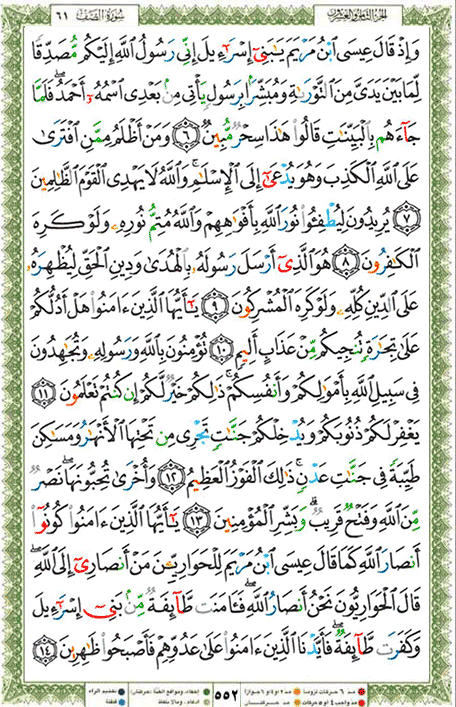 سُورَةُ الصَّفِّ ٦١ الجزء الثامن والعشرون
وَإِذْ قَالَ عِيسَى ٱبْنُ مَرْيَمَ يَـٰبَنِىٓ إِسْرَٰٓءِيلَ إِنِّى رَسُولُ ٱللَّهِ إِلَيْكُم مُّصَدِّقًا
لِّمَا بَيْنَ يَدَىَّ مِنَ ٱلتَّوْرَىٰةِ وَمُبَشِّرًۢا بِرَسُولٍ يَأْتِى مِنۢ بَعْدِى ٱسْمُهُۥٓ أَحْمَدُ ۖ فَلَمَّا
جَآءَهُم بِٱلْبَيِّنَـٰتِ قَالُوا۟ هَـٰذَا سِحْرٌ مُّبِينٌ ٦ وَمَنْ أَظْلَمُ مِمَّنِ ٱفْتَرَىٰ
عَلَى ٱللَّهِ ٱلْكَذِبَ وَهُوَ يُدْعَىٰٓ إِلَى ٱلْإِسْلَـٰمِ ۚ وَٱللَّهُ لَا يَهْدِى ٱلْقَوْمَ ٱلظَّـٰلِمِينَ
٧ يُرِيدُونَ لِيُطْفِـُٔوا۟ نُورَ ٱللَّهِ بِأَفْوَٰهِهِمْ وَٱللَّهُ مُتِمُّ نُورِهِۦ وَلَوْ كَرِهَ
ٱلْكَـٰفِرُونَ ٨ هُوَ ٱلَّذِىٓ أَرْسَلَ رَسُولَهُۥ بِٱلْهُدَىٰ وَدِينِ ٱلْحَقِّ لِيُظْهِرَهُۥ
عَلَى ٱلدِّينِ كُلِّهِۦ وَلَوْ كَرِهَ ٱلْمُشْرِكُونَ ٩ يَـٰٓأَيُّهَا ٱلَّذِينَ ءَامَنُوا۟ هَلْ أَدُلُّكُمْ
عَلَىٰ تِجَـٰرَةٍ تُنجِيكُم مِّنْ عَذَابٍ أَلِيمٍ ١٠ تُؤْمِنُونَ بِٱللَّهِ وَرَسُولِهِۦ وَتُجَـٰهِدُونَ
فِى سَبِيلِ ٱللَّهِ بِأَمْوَٰلِكُمْ وَأَنفُسِكُمْ ۚ ذَٰلِكُمْ خَيْرٌ لَّكُمْ إِن كُنتُمْ تَعْلَمُونَ ١١
يَغْفِرْ لَكُمْ ذُنُوبَكُمْ وَيُدْخِلْكُمْ جَنَّـٰتٍ تَجْرِى مِن تَحْتِهَا ٱلْأَنْهَـٰرُ وَمَسَـٰكِنَ
طَيِّبَةً فِى جَنَّـٰتِ عَدْنٍ ۚ ذَٰلِكَ ٱلْفَوْزُ ٱلْعَظِيمُ ١٢ وَأُخْرَىٰ تُحِبُّونَهَا ۖ نَصْرٌ
مِّنَ ٱللَّهِ وَفَتْحٌ قَرِيبٌ ۗ وَبَشِّرِ ٱلْمُؤْمِنِينَ ١٣ يَـٰٓأَيُّهَا ٱلَّذِينَ ءَامَنُوا۟ كُونُوٓا۟
أَنصَارَ ٱللَّهِ كَمَا قَالَ عِيسَى ٱبْنُ مَرْيَمَ لِلْحَوَارِيِّـۧنَ مَنْ أَنصَارِىٓ إِلَى ٱللَّهِ ۖ
قَالَ ٱلْحَوَارِيُّونَ نَحْنُ أَنصَارُ ٱللَّهِ ۖ فَـَٔامَنَت طَّآئِفَةٌ مِّنۢ بَنِىٓ إِسْرَٰٓءِيلَ
وَكَفَرَت طَّآئِفَةٌ ۖ فَأَيَّدْنَا ٱلَّذِينَ ءَامَنُوا۟ عَلَىٰ عَدُوِّهِمْ فَأَصْبَحُوا۟ ظَـٰهِرِينَ ١٤
٥٥٢
مدّ ٦ حركات لزوماً مدّ ٢ أو ٤ أو ٦ جوازاً إخفاء، ومواقع الغنّة (حركتان) تفخيم الراء
مدّ واجب ٤ أو ٥ حركات مدّ حركتان إدغام، وما لا يلفظ قلقلة